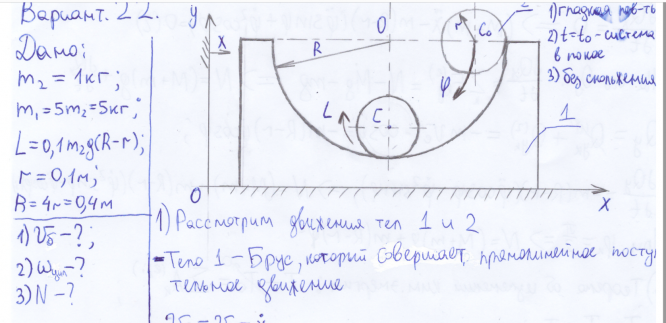 Вариант. 22.
Дано:
m₂ = 1кг,
m₁=5m₂=5кг,
L=0,1m₂g(R-r);
r=0,1м;
R=4r=0,4м
1) υδ-?;
2) ωцил-?
3) N-?
y
O
R
r
C₀
2
x
L
C
φ
1
O
x
1) гладкая пов-ть
2) t=t₀-система
в покое
3) без скольжения
1) Рассмотрим движения тел 1 и 2
- Тело 1 - Брус, который совершает прямолинейное посту
тельное движение